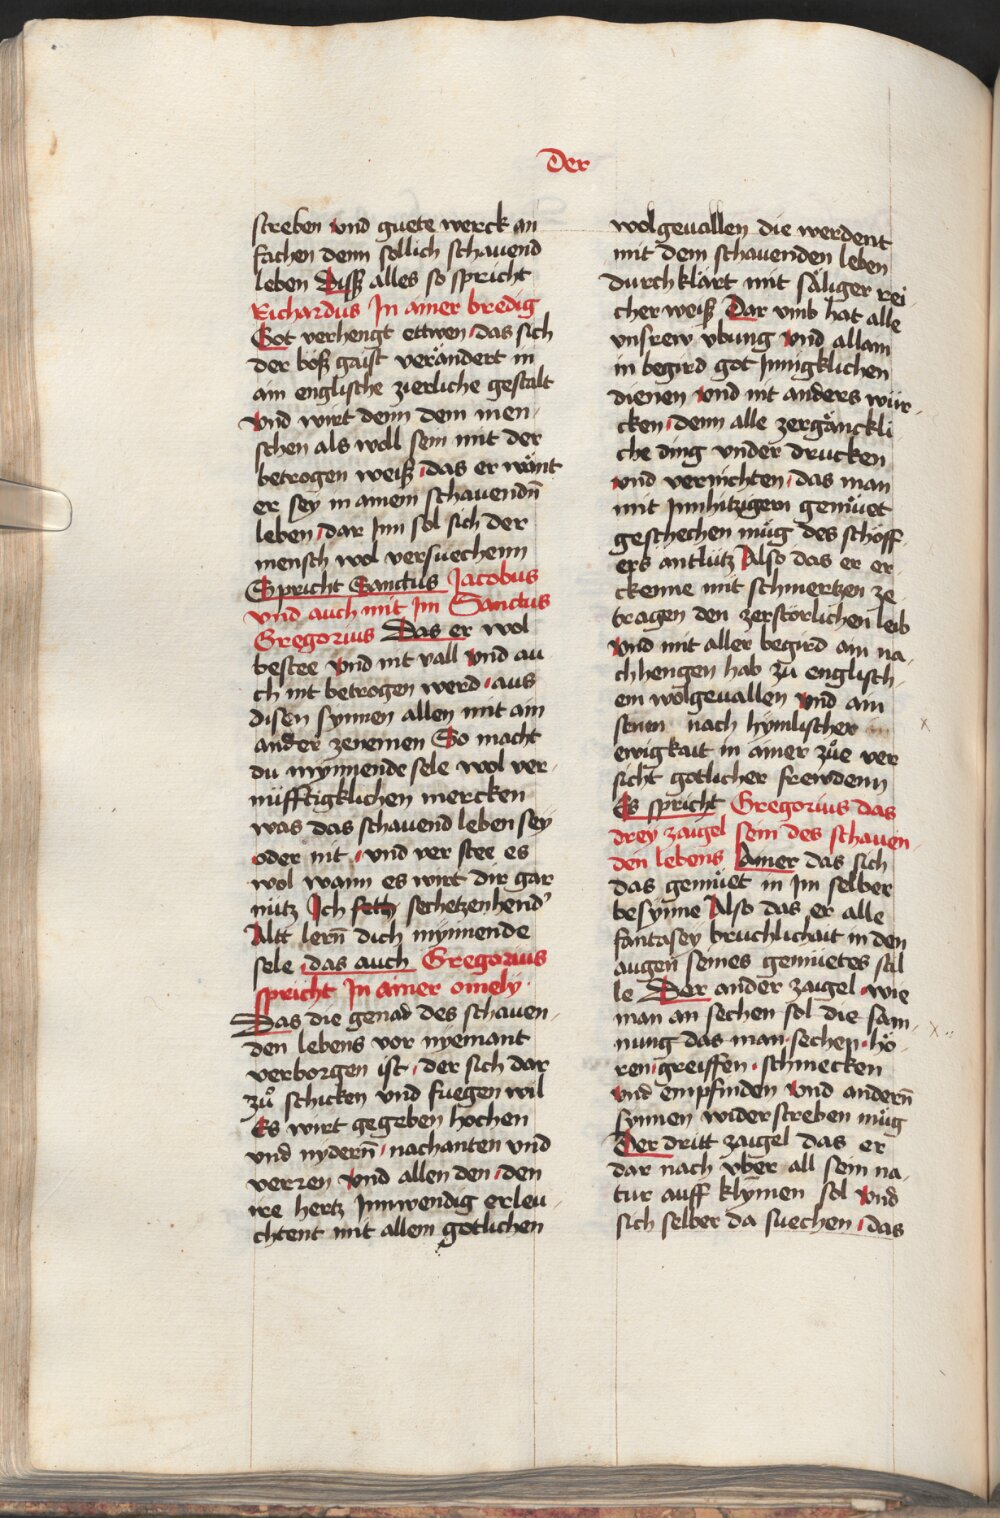 Der
streben vnd guete werck an
fachen denn sollich schauend
leben Diss alles so spricht
Richardus In ainer bredig
Got verhengt ettwen das sich
der böß gaist verändert in
ain englische zierliche gestalt
Vnd wirt denn dem men-
schen als woll sein mit der
betrogen weiß das er wänt
er sey in ainem schauendn̄
leben dar Inn sol sich der
mensch wol versuechenn
Spricht Sanctus Jacobus
vnd auch mit Im Sanctus
Gregorius Das er wol
bestee vnd nit vall vnd au
ch nit betrogen werd aus
disen synnen allen mit ain
ander zenemen So macht
du mynnende sele wol ver-
nüfftigklichen mercken
was das schauend leben sey
oder nit vnd ver stee es
wol wann es wirt dir gar
nütz Ich sechetzenhend
Altt lern̄ dich mynnende
sele das auch Gregorius
spricht In ainer omely
Das die genad des schauen-
den lebens vor nyemant
verborgen ist der sich dar
zů schicken vnd fuegen wil
Es wirt gegeben hochen
vnd nydern̄ nachanten vnd
verren vnd allen den den
ire hertz Innwendig erleu-
chtent mit allem gotlichen
wolgeuallen die werdent
mit dem schauenden leben
durch klärt mit säliger rei
cher weiß Dar vmb hat alle
vnsrew vbung vnd allain
in begird got Innigklichen
dienen vnd nit anders wür-
cken denn alle zergänckli
che ding vnder drucken
vnd vernichten das man
mit Innhitzigem gemüet
geschechen müg des schöff
ers antlütz Also das er er-
ckenne mit schmertzen ze
tragen den zerstörlichen leib
Vnd mit aller begird ain na-
chhengen hab zu englisch-
em wolgeuallen vnd ain
stim nach hymlischer
ewigkait in ainer zůe ver
sicht gotlicher frewdenn
Es spricht Gregorius das
drey zaigel sein des schauen-
den lebens Ainer das sich
das gemüet in Im selber
besynne Also das er alle
fantasey bruchlichait in den
augen seines gemüetes stil
le Der ander zaigel wie
man an sechen sol die sam-
nung das man sechen hö-
ren greiffen schmecken
vnd empfinden vnd andern̄
synnen widerstreben müg
Der dritt zaigel das er
dar nach vber all sein na-
tur auff klymen sol vnd
sich selber da suechen das